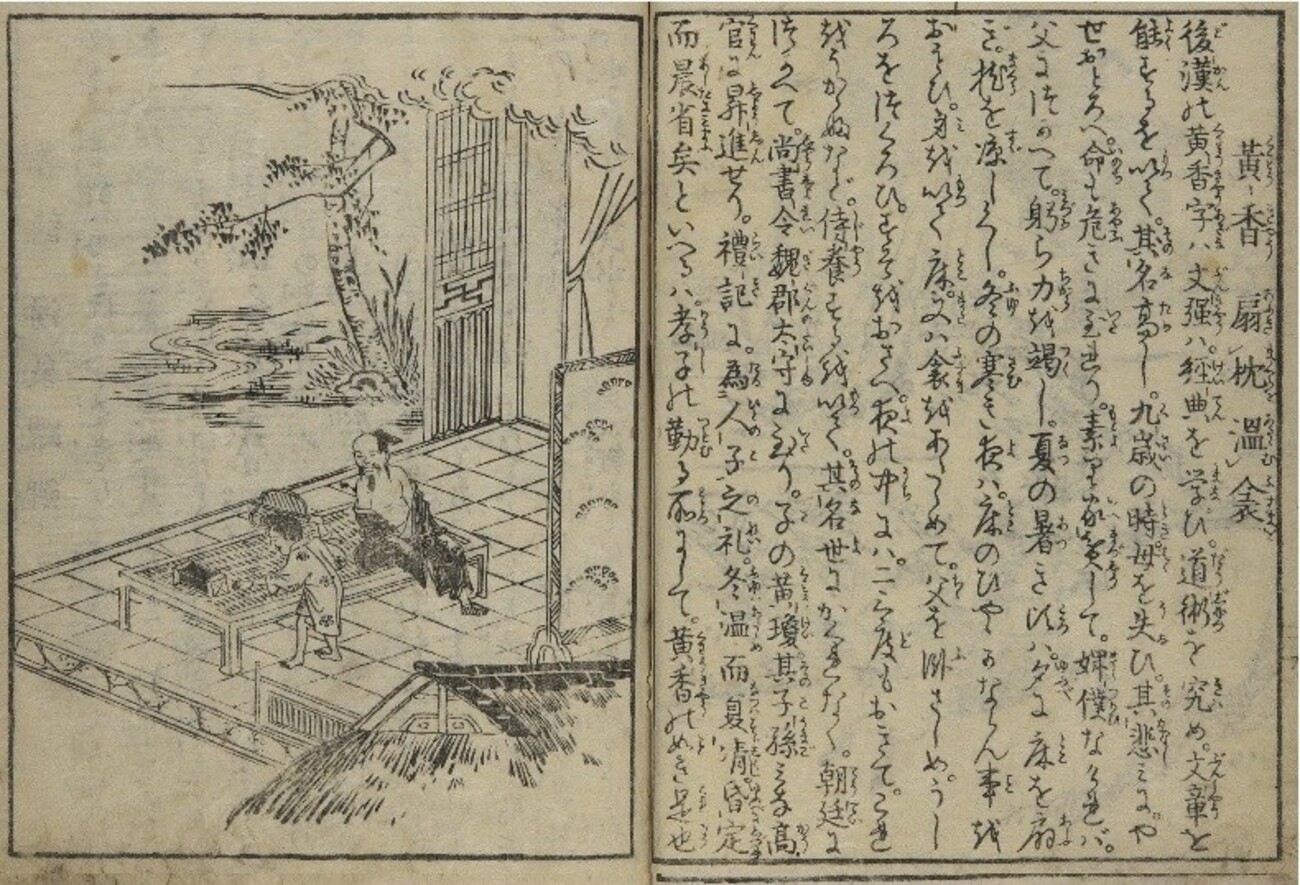 黄香扇枕温衾
後漢の黄香字ハ文强ハ。經典を学び。道術を究め。文章を
能するを以て。其名高し。九歳の時母を失ひ。其悲ミに。や
せおとろへ。命も危きに至れり。素より家貧して。婢僕なけれバ。
父につかへて。躬ら力を竭し。夏の暑き頃ハ。夕に床を扇
ぎ。枕を凉しくし。冬の寒き夜ハ。床のひやゝかならん事を
おもひ。身を以て床又ハ衾をあたゝめて。父を臥さしめ。うし
ろをつくろひ。すそをおさへ。夜の中にハ。二三度もおきて。これ
をうかゞふなど。侍養するを以て。其名世にかくれなく。朝廷に
つかへて。尚書令魏郡太守に至り。子の黄瓊其子孫ミな高
官に昇進せり。禮記に。為人子之礼。冬温而夏凊。昏定
而晨省矣といへるハ。孝子の勤る所にして。黄香のごとき是也